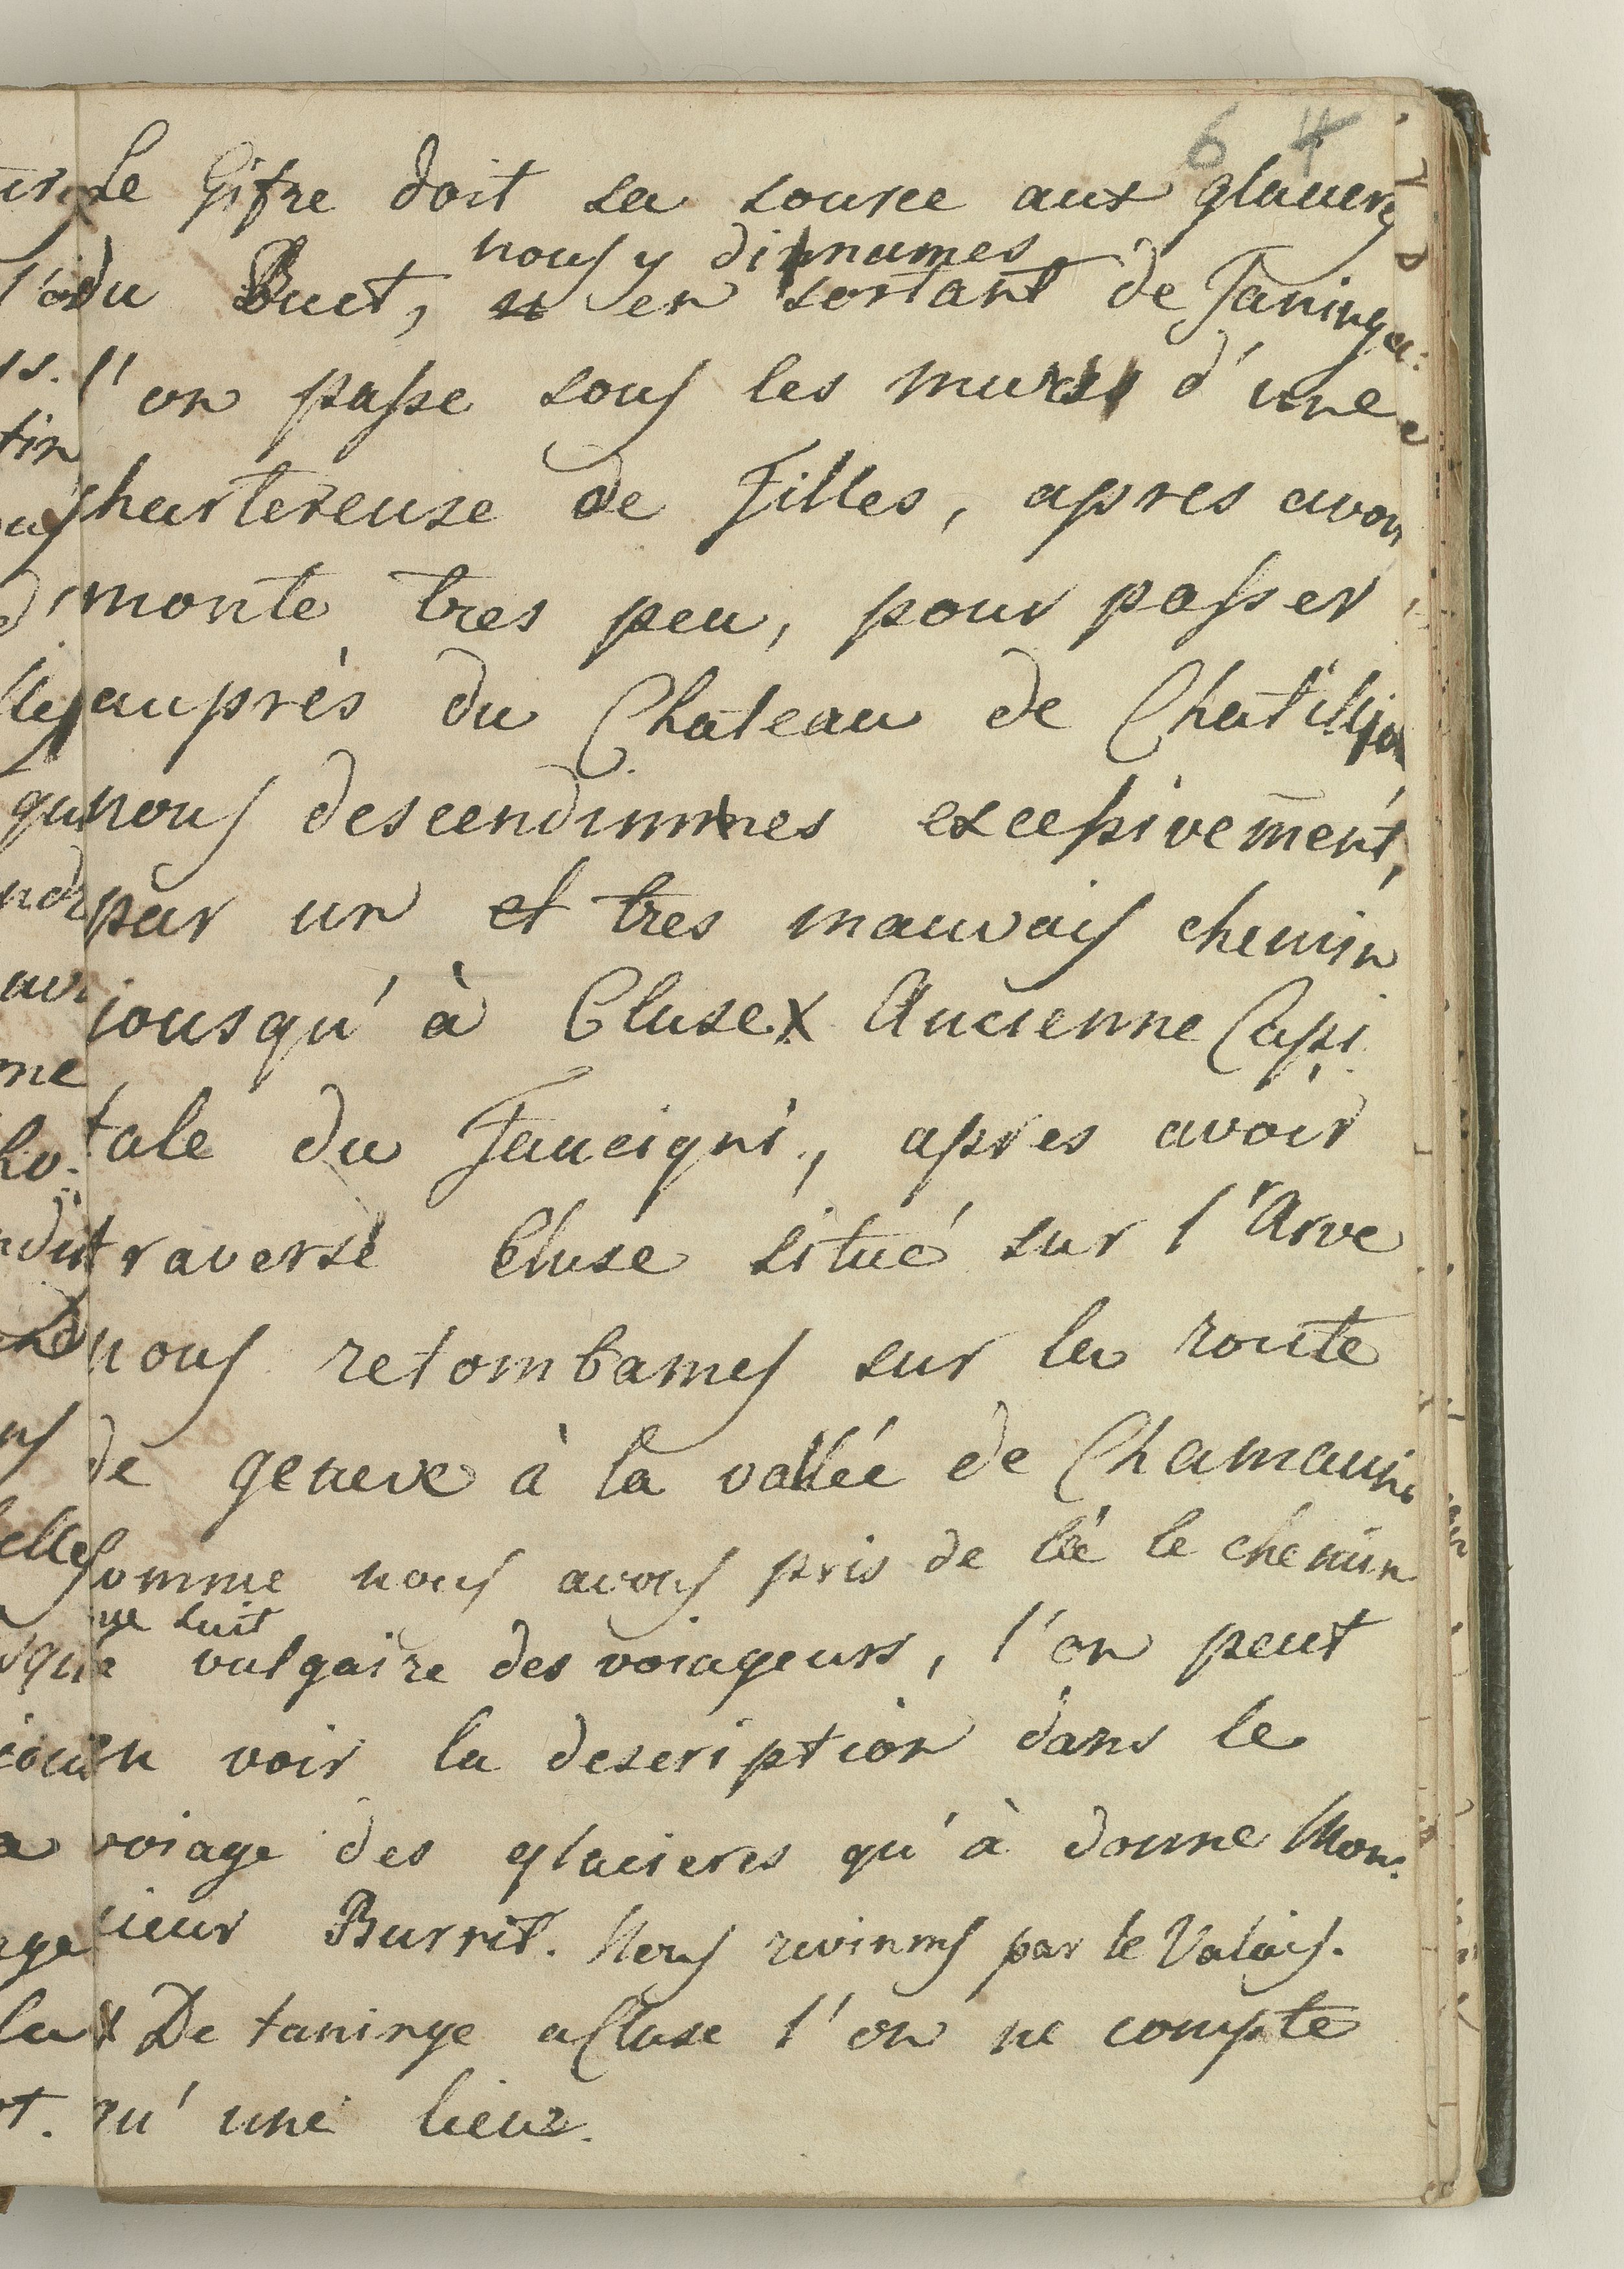 6 4
Le Gifre doit sa source aux glaciers
nous y dinames
du Buet, en sortant de Taninge
l'on passe sous les murs d'une
chartereuse de Filles, apres avoir
monte tres peu, pour passer
auprès du Chateau de Chatillion
nous descendimmes excessivement,
par un et tres mauvais chemin
jousqu'à Cluse x Ancienne Capi
tale du Faucigni, apres avoir
traversé Cluse situé sur l'Arve
nous retombames sur la route
de geneve à la vallée de Chamauni
Comme nous avons pris de là le chemin
que suit
le vulgaire des voiageurs, l'on peut
en voir la description dans le
voiage des glacieres qu'à donne Mon-
sieur Burrit. Nous revinmes par le Valais.
x De taninge a Cluse l'on ne compte
qu'une lieue.